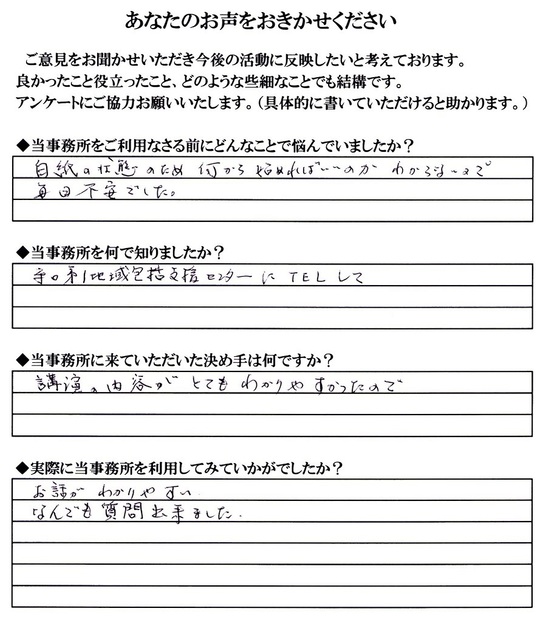 あなたのお声をおきかせください
ご意見をお聞かせいただき今後の活動に反映したいと考えております。
良かったこと役立ったこと、どのような些細なことでも結構です。
アンケートにご協力お願いいたします。（具体的に書いていただけると助かります。）
◆当事務所をご利用なさる前にどんなことで悩んでいましたか？
白紙の状態のため 何から始めればいいのか わからないまで
毎日不安でした。
◆当事務所を何で知りましたか？
守口第1地域包括支援センターに TELして
◆当事務所に来ていただいた決め手は何ですか？
講演の内容が とても わかりやすかったので
◆実際に当事務所を利用してみていかがでしたか？
お話が わかりやすい.
なんでも質問出来ました.